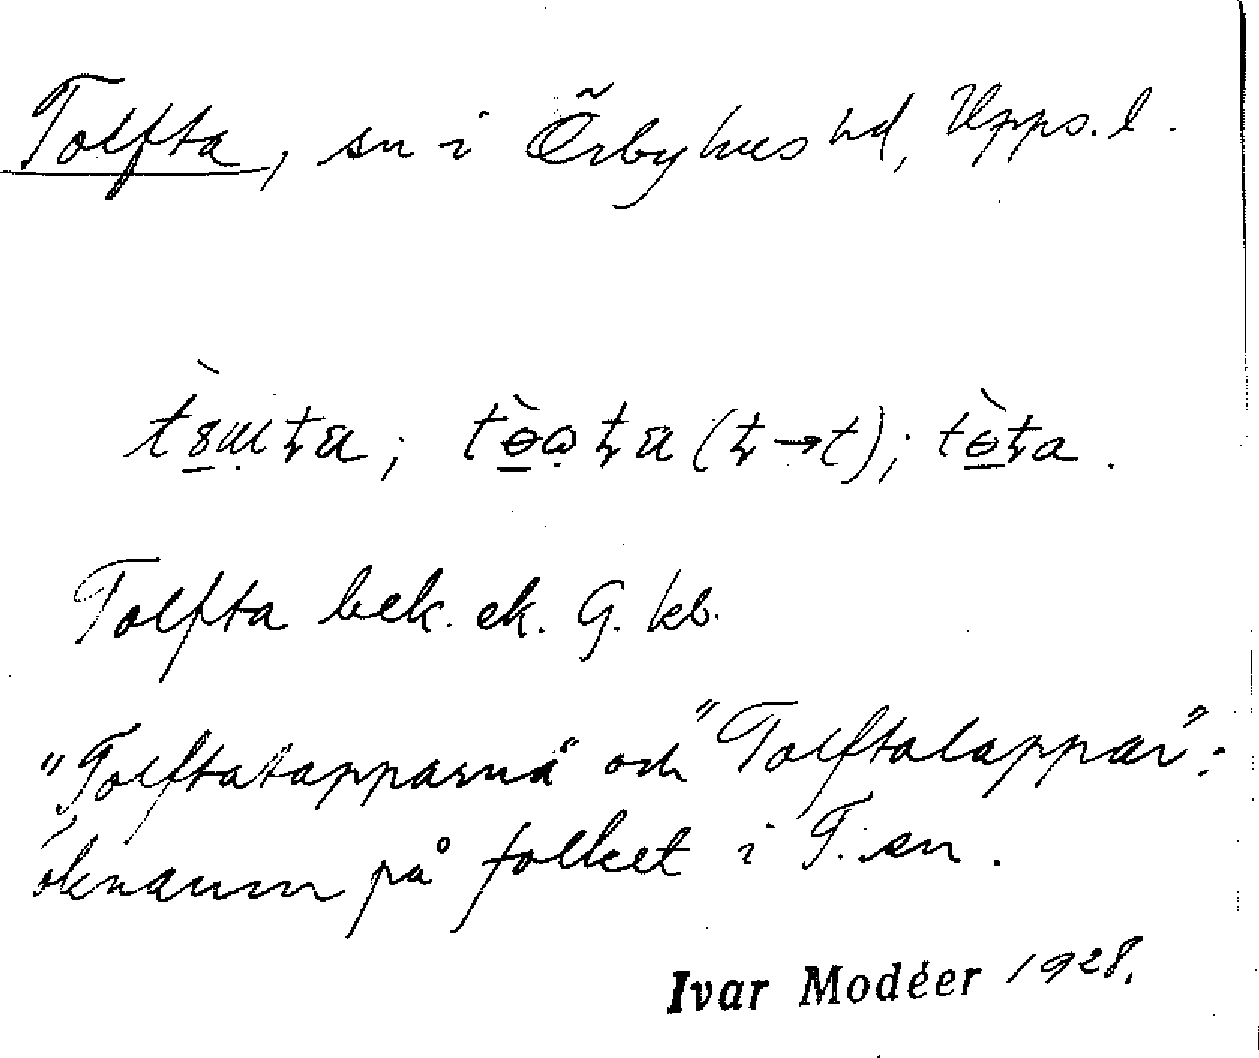 Tolfta, sn i Örbyhus hd, Upps. l.
Tolfta bek. ek. G. kb.
"Tolftatapparna" och "Tolftalappar":
öknamn på folket i T. sn.
Ivar Modéer 1928.